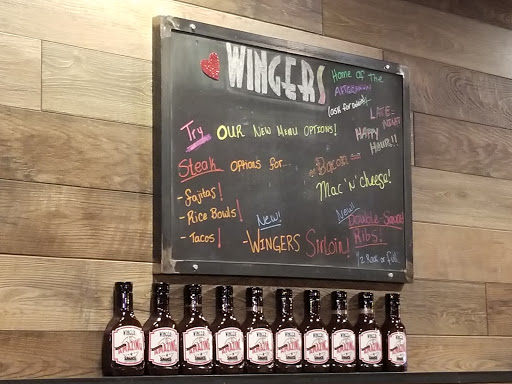 WINGERS
Home of The
(ask for details)
LATE-
NIGHT
HAPPY
HOUR!!
Try OUR New Menu OPTIONS!
Steak options for
Bacon
Mac 'n' cheese!
- fajitas!
- Rice Bowls!
- Tacos!
New!
- WINGERS Sirloin!
New!
Double-Sauced
Ribs!
1/2 Rack or full
WINGERS